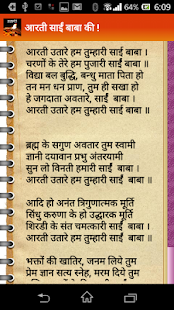 6:09
आरती साईं बाबा की !
आरती उतारे हम तुम्हारी साईं बाबा ।
चरणों के तेरे हम पुजारी साईं बाबा ॥
विद्या बल बुद्धि, बन्धु माता पिता हो
तन मन धन प्राण, तुम ही सखा हो
हे जगदाता अवतारे, साईं बाबा ।
आरती उतारे हम तुम्हारी साईं बाबा ॥
ब्रह्म के सगुण अवतार तुम स्वामी
ज्ञानी दयावान प्रभु अंतरयामी
सुन लो विनती हमारी साईं बाबा ।
आरती उतारे हम तुम्हारी साईं बाबा ॥
आदि हो अनंत त्रिगुणात्मक मूर्ति
सिंधु करुणा के हो उद्धारक मूर्ति
शिरडी के संत चमत्कारी साईं बाबा ।
आरती उतारे हम तुम्हारी साईं बाबा ॥
भक्तों की खातिर, जनम लिये तुम
प्रेम ज्ञान सत्य स्नेह, मरम दिये तुम